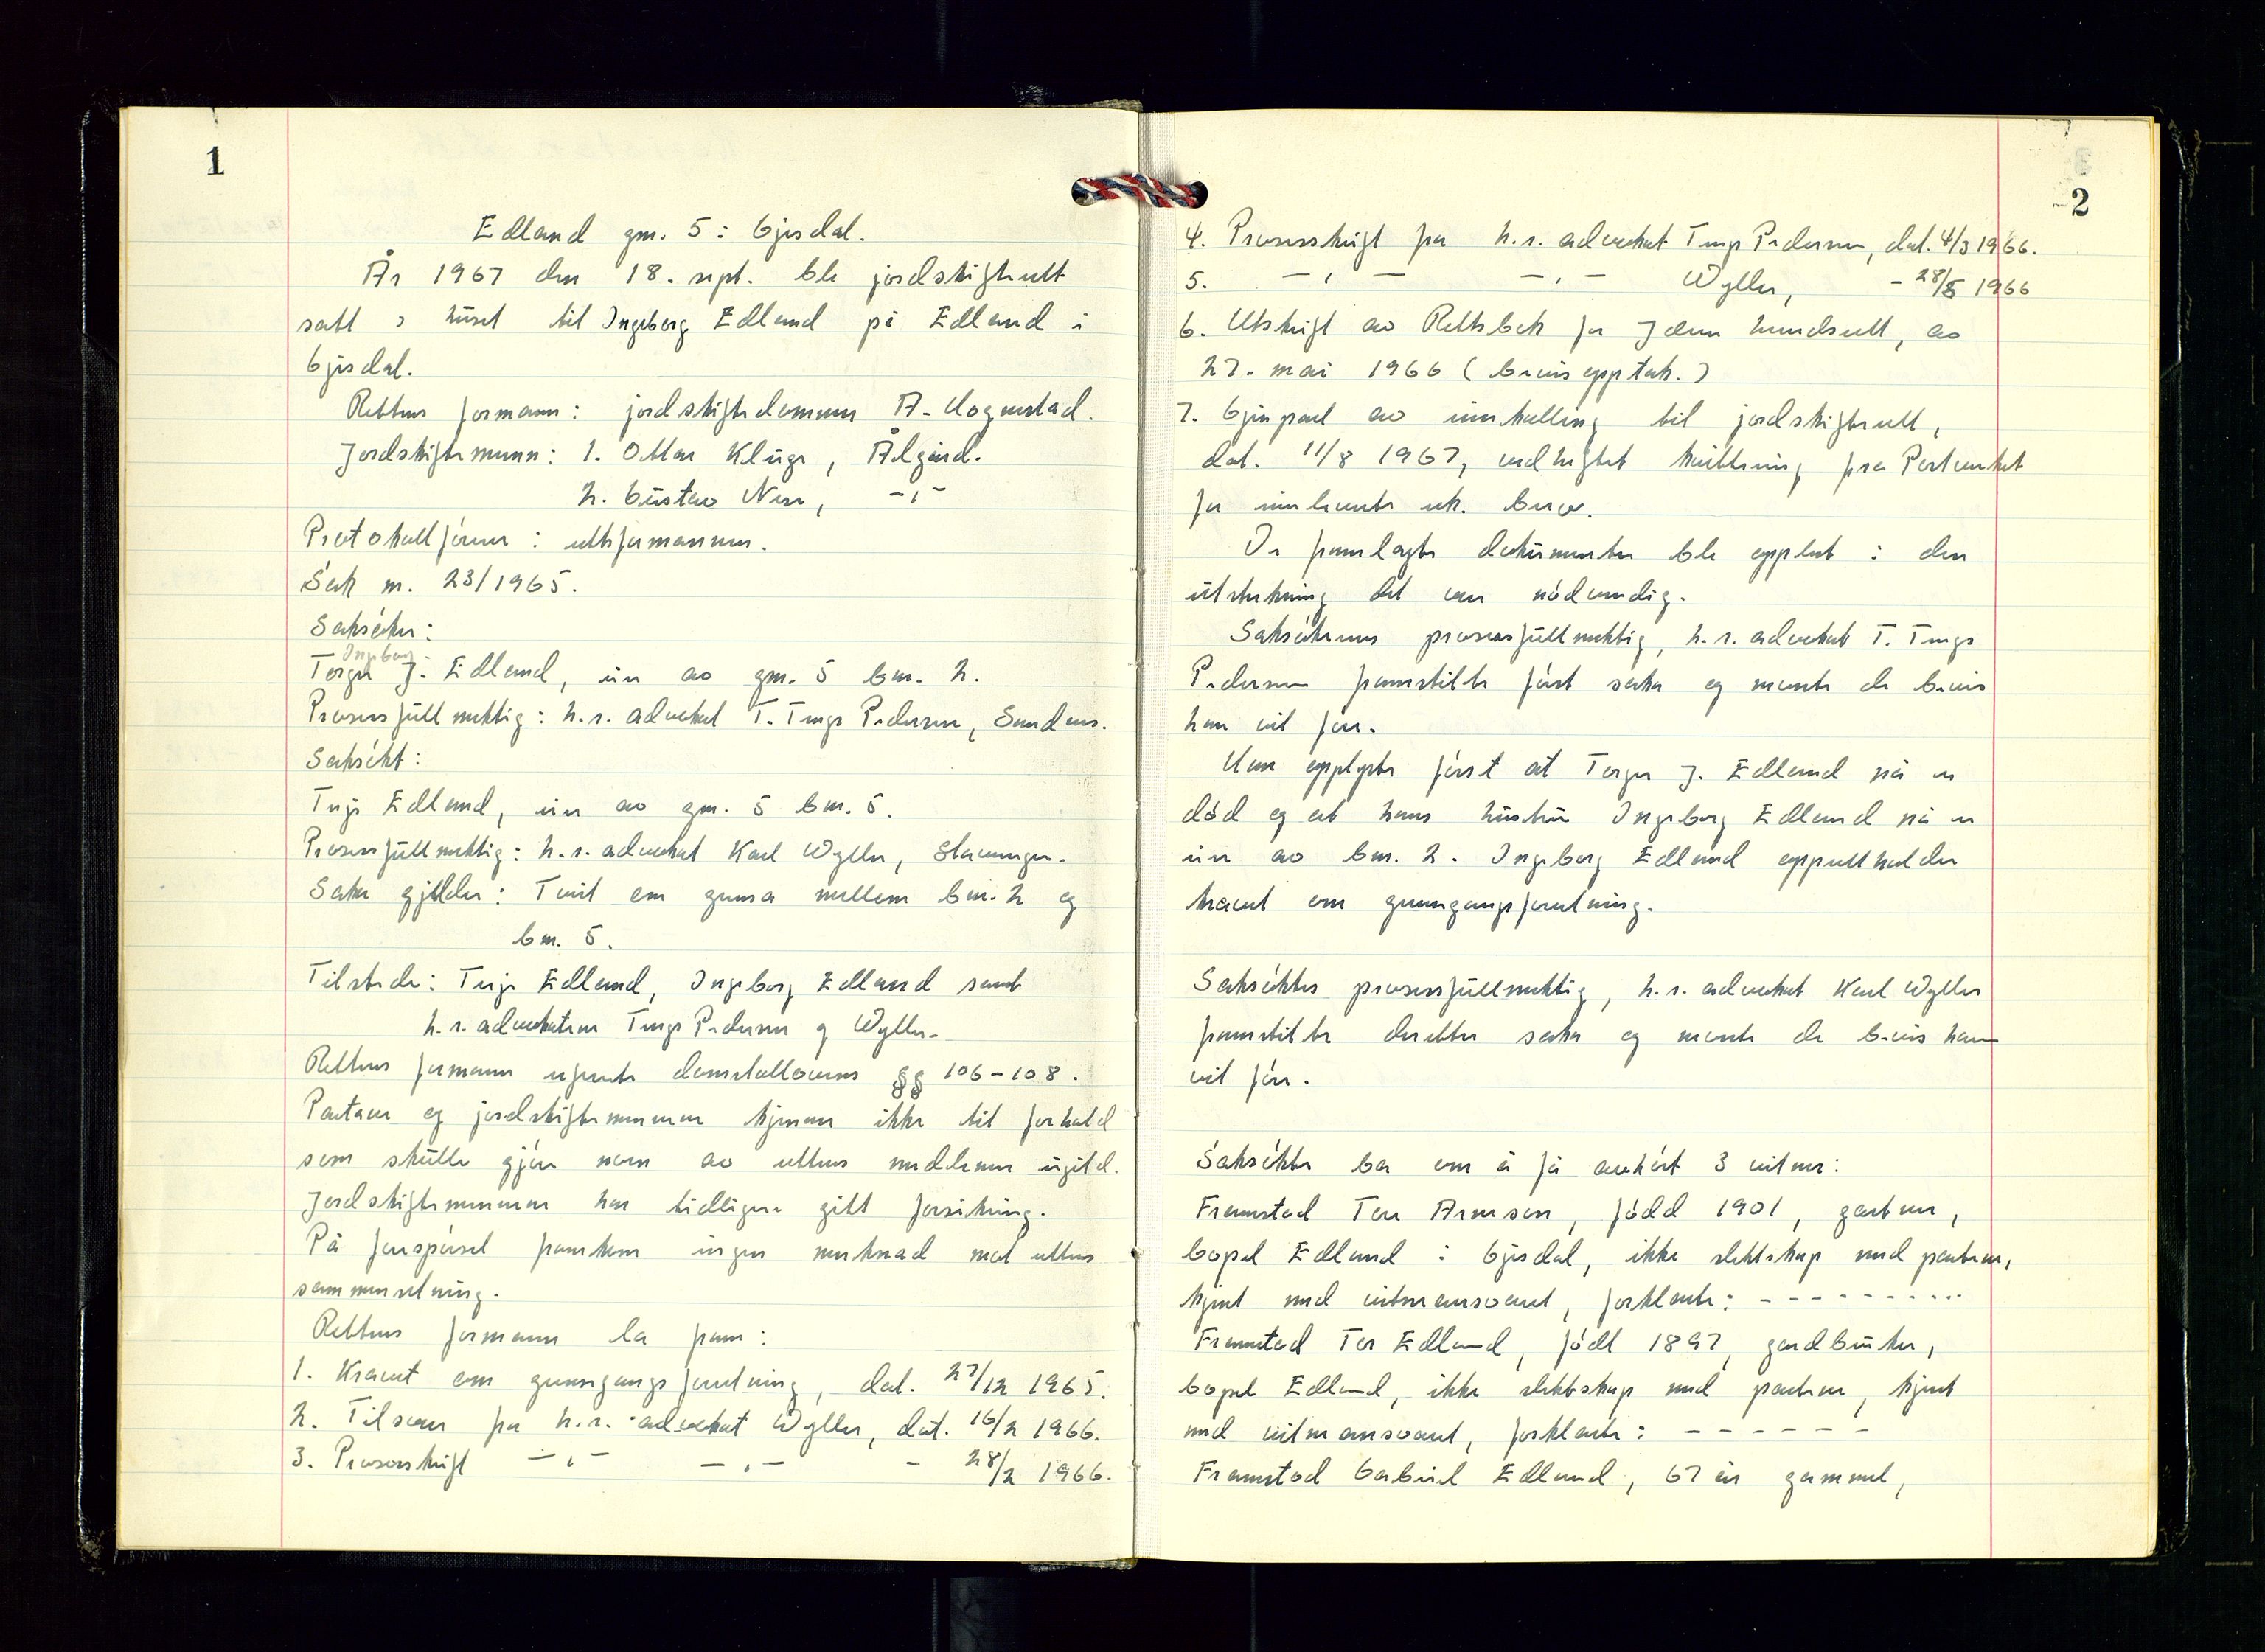 1
Edland gnr. 5 i Gjesdal.
År 1967 den 18. sept. ble jordskifterett
satt i huset til Ingeborg Edland på Edland i
Gjesdal.
Rettens formann: jordskiftedommer A.
Jordskiftemenn: 1. Ottar Kluge, Ålgård.
2. Gustav Nese, -"-
Protokollfører: rettsformannen.
Sak nr. 23/1965.
Saksøker:
Ingeborg
Torger J. Edland, eier av gnr. 5 bnr. 2.
Prosessfullmektig: h.r. advokat T. Tenge Pedersen, Sandnes.
Saksøkt:
Terje Edland, eier av gnr. 5 bnr. 5.
Prosessfullmektig: h.r. advokat Karl Wyller, Stavanger.
Saka gjelder: Tvist om grensa mellom bnr. 2 og
bnr. 5.
Tilstede: Terje Edland, Ingeborg Edland samt
h.r. advokatene Tenge Pedersen og Wyller.
Rettens formann refererte domstollovens §§ 106-108.
Partene og jordskiftemennene kjenner ikke til forhold
som skulle gjøre noen av rettens medlemmer ugild.
Jordskiftemennene har tidligere gitt forsikring.
På forespørsel framkom ingen merknad mot rettens
sammensetning.
Rettens formann la fram:
1. Kravet om grensegangsforretning, dat. 27/12 1965.
2. Tilsvar fra h.r. advokat Wyller, dat. 16/2 1966.
3. Prosesskrift -"- -"- - 28/2 1966.
2
4. Prosesskrift fra h.r. advokat Tenge Pedersen, dat. 4/3 1966.
5. -"- -"- Wyller, - 28/5 1966
6. Utskrift av Rettsbok for Jæren herredsrett, av
27. mai 1966 (bevisopptak.)
7. Gjenpart av innkalling til jordskifterett,
dat. 11/8 1967, vedheftet kvittering fra Postverket
for innleverte rek. brev.
De framlagte dokumenter ble opplest i den
utstrekning det var nødvendig.
Saksøkerens prosessfullmektig, h.r. advokat T. Tenge
Pedersen framstilte først saka og nevnte de bevis
han vil føre.
Han opplyste først at Torger J. Edland nå er
død og at hans hustru Ingeborg Edland nå er
eier av bnr. 2. Ingeborg Edland opprettholder
kravet om grensegangsforretning.
Saksøktes prosessfullmektig, h.r. advokat Karl Wyller
framstilte deretter saka og nevnte de bevis han
vil føre.
Saksøkte ba om å få avhørt 3 vitner:
Framstod Tore Arneson, fødd 1901, gartner,
bopel Edland i Gjesdal, ikke slektskap med partene,
kjent med vitneansvaret, forklarte: - - - - - - - - -
Framstod Tor Edland, født 1897, gardbruker,
bopel Edland, ikke slektskap med partene, kjent
med vitneansvaret, forklarte: - - - - - -
Framstod Gabriel Edland, 67 år gammel,